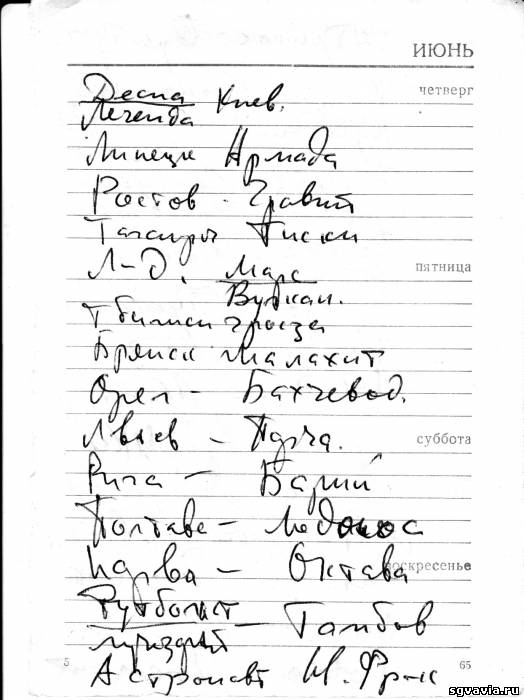 ИЮНЬ
четверг
Десна Киев.
Легенда
Липецк Армада
Ростов - Гравий
Таганрог Тиски
пятница
Л-д. Марс
Вулкан.
Тбилиси Гроза
Брянск Малахит
Орел - Бахчевод.
суббота
Львов - Парча.
Рига - Барий
Полтава - Медонос
воскресенье
Нарва - Октава
Футболист - Тамбов
Астронавт И. Франк
5 65
sgvavia.ru